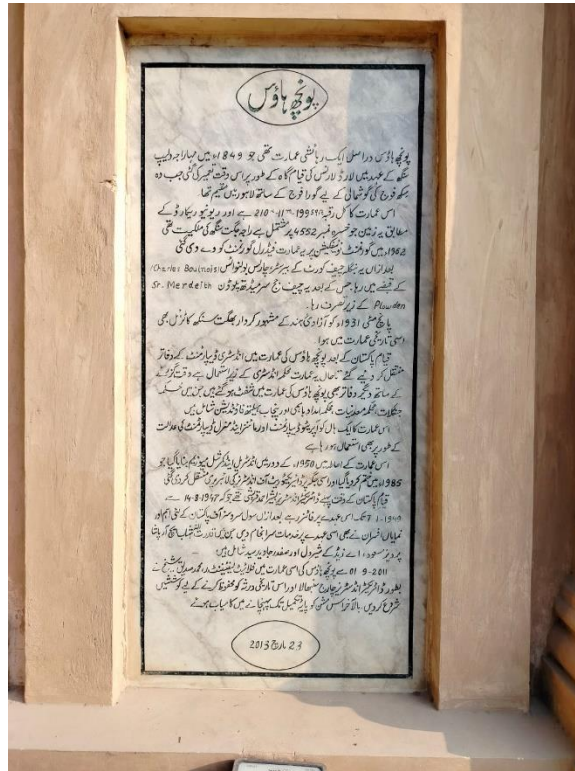 پونچھ ہاؤس
پونچھ ہاؤس دراصل ایک رہائشی عمارت تھی جو 1849ء میں مہاراجہ دلیپ
سنگھ کے عہد میں لارڈ لارنس کی قیام گاہ کے طور پر اس وقت تعمیر کی گئی جب وہ
سکھ فوج کی گوشمالی کے لیے گورا فوج کے ساتھ لاہور میں مقیم تھا۔
اس عمارت کا کل رقبہ ہے اور ریونیو ریکارڈ کے
مطابق یہ زمین جو خسرہ نمبر 4552 پر مشتمل ہے راجہ جگت سنگھ کی ملکیت تھی
1962ء میں گورنمنٹ نوٹیفکیشن پر یہ عمارت فیڈرل گورنمنٹ کو دے دی گئی
بعد ازاں یہ بنگلہ چیف کورٹ کے بیرسٹر چارلس بولنوائس (Charles Boulnois)
کے قبضے میں رہا جس کے بعد یہ چیف جج سر میرڈتھ پلوڈن Sr. Merdeith
Plowden کے زیر تصرف رہا۔
پانچ مئی 1931ء کو آزادی ہند کے مشہور کردار بھگت سنگھ کا ٹرائل بھی
اسی تاریخی عمارت میں ہوا۔
قیام پاکستان کے بعد پونچھ ہاؤس کی عمارت میں انڈسٹری ڈیپارٹمنٹ کے دفاتر
منتقل کر دیئے گئے تاحال یہ عمارت محکمہ انڈسٹری کے زیر استعمال ہے وقت گزرنے
کے ساتھ دیگر دفاتر بھی پونچھ ہاؤس کی عمارت میں شفٹ ہو گئے ہیں جن میں محکمہ
جنگلات، محکمہ معدنیات، محکمہ امداد باہمی اور پنجاب ہیلتھ فاؤنڈیشن شامل ہیں
اس عمارت کا ایک ہال کوآپریٹو ڈیپارٹمنٹ اور مائنز اینڈ منرل ڈیپارٹمنٹ کی عدالت
کے طور پر بھی استعمال ہو رہا ہے
اس عمارت کے احاطہ میں 1950ء کے دور میں انڈسٹریل اینڈ کمرشل میوزیم بنایا گیا جو
1985ء میں ختم کر دیا گیا اور اسی جگہ پر ڈائریکٹوریٹ آف انڈسٹریز کی لائبریری منتقل کر دی گئی
قیام پاکستان کے وقت پہلے ڈائریکٹر انڈسٹریز بشیر احمد قریشی تھے جو کہ 14-8-1947 سے
تک اس عہدے پر فائز رہے بعد ازاں سول سروسز آف پاکستان کے کئی اہم اور
نمایاں افسران نے بھی اسی عہدے پر خدمات سرانجام دیں جن میں قدرت اللہ شہاب ایچ آر پاشا
پرویز مسعود، اے زیڈ کے شیر دل اور صفدر جاوید سید شامل ہیں
01-9-2011 سے پونچھ ہاؤس کی اسی عمارت میں فلائیٹ لیفٹیننٹ ر محمد صدیق شیخ نے
بطور ڈائریکٹر انڈسٹریز چارج سنبھالا اور اس تاریخی ورثہ کو محفوظ کرنے کے لیے کوششیں
شروع کر دیں بالآخر اس مشن کو پایہ تکمیل تک پہنچانے میں کامیاب ہوئے
23 مارچ 2013